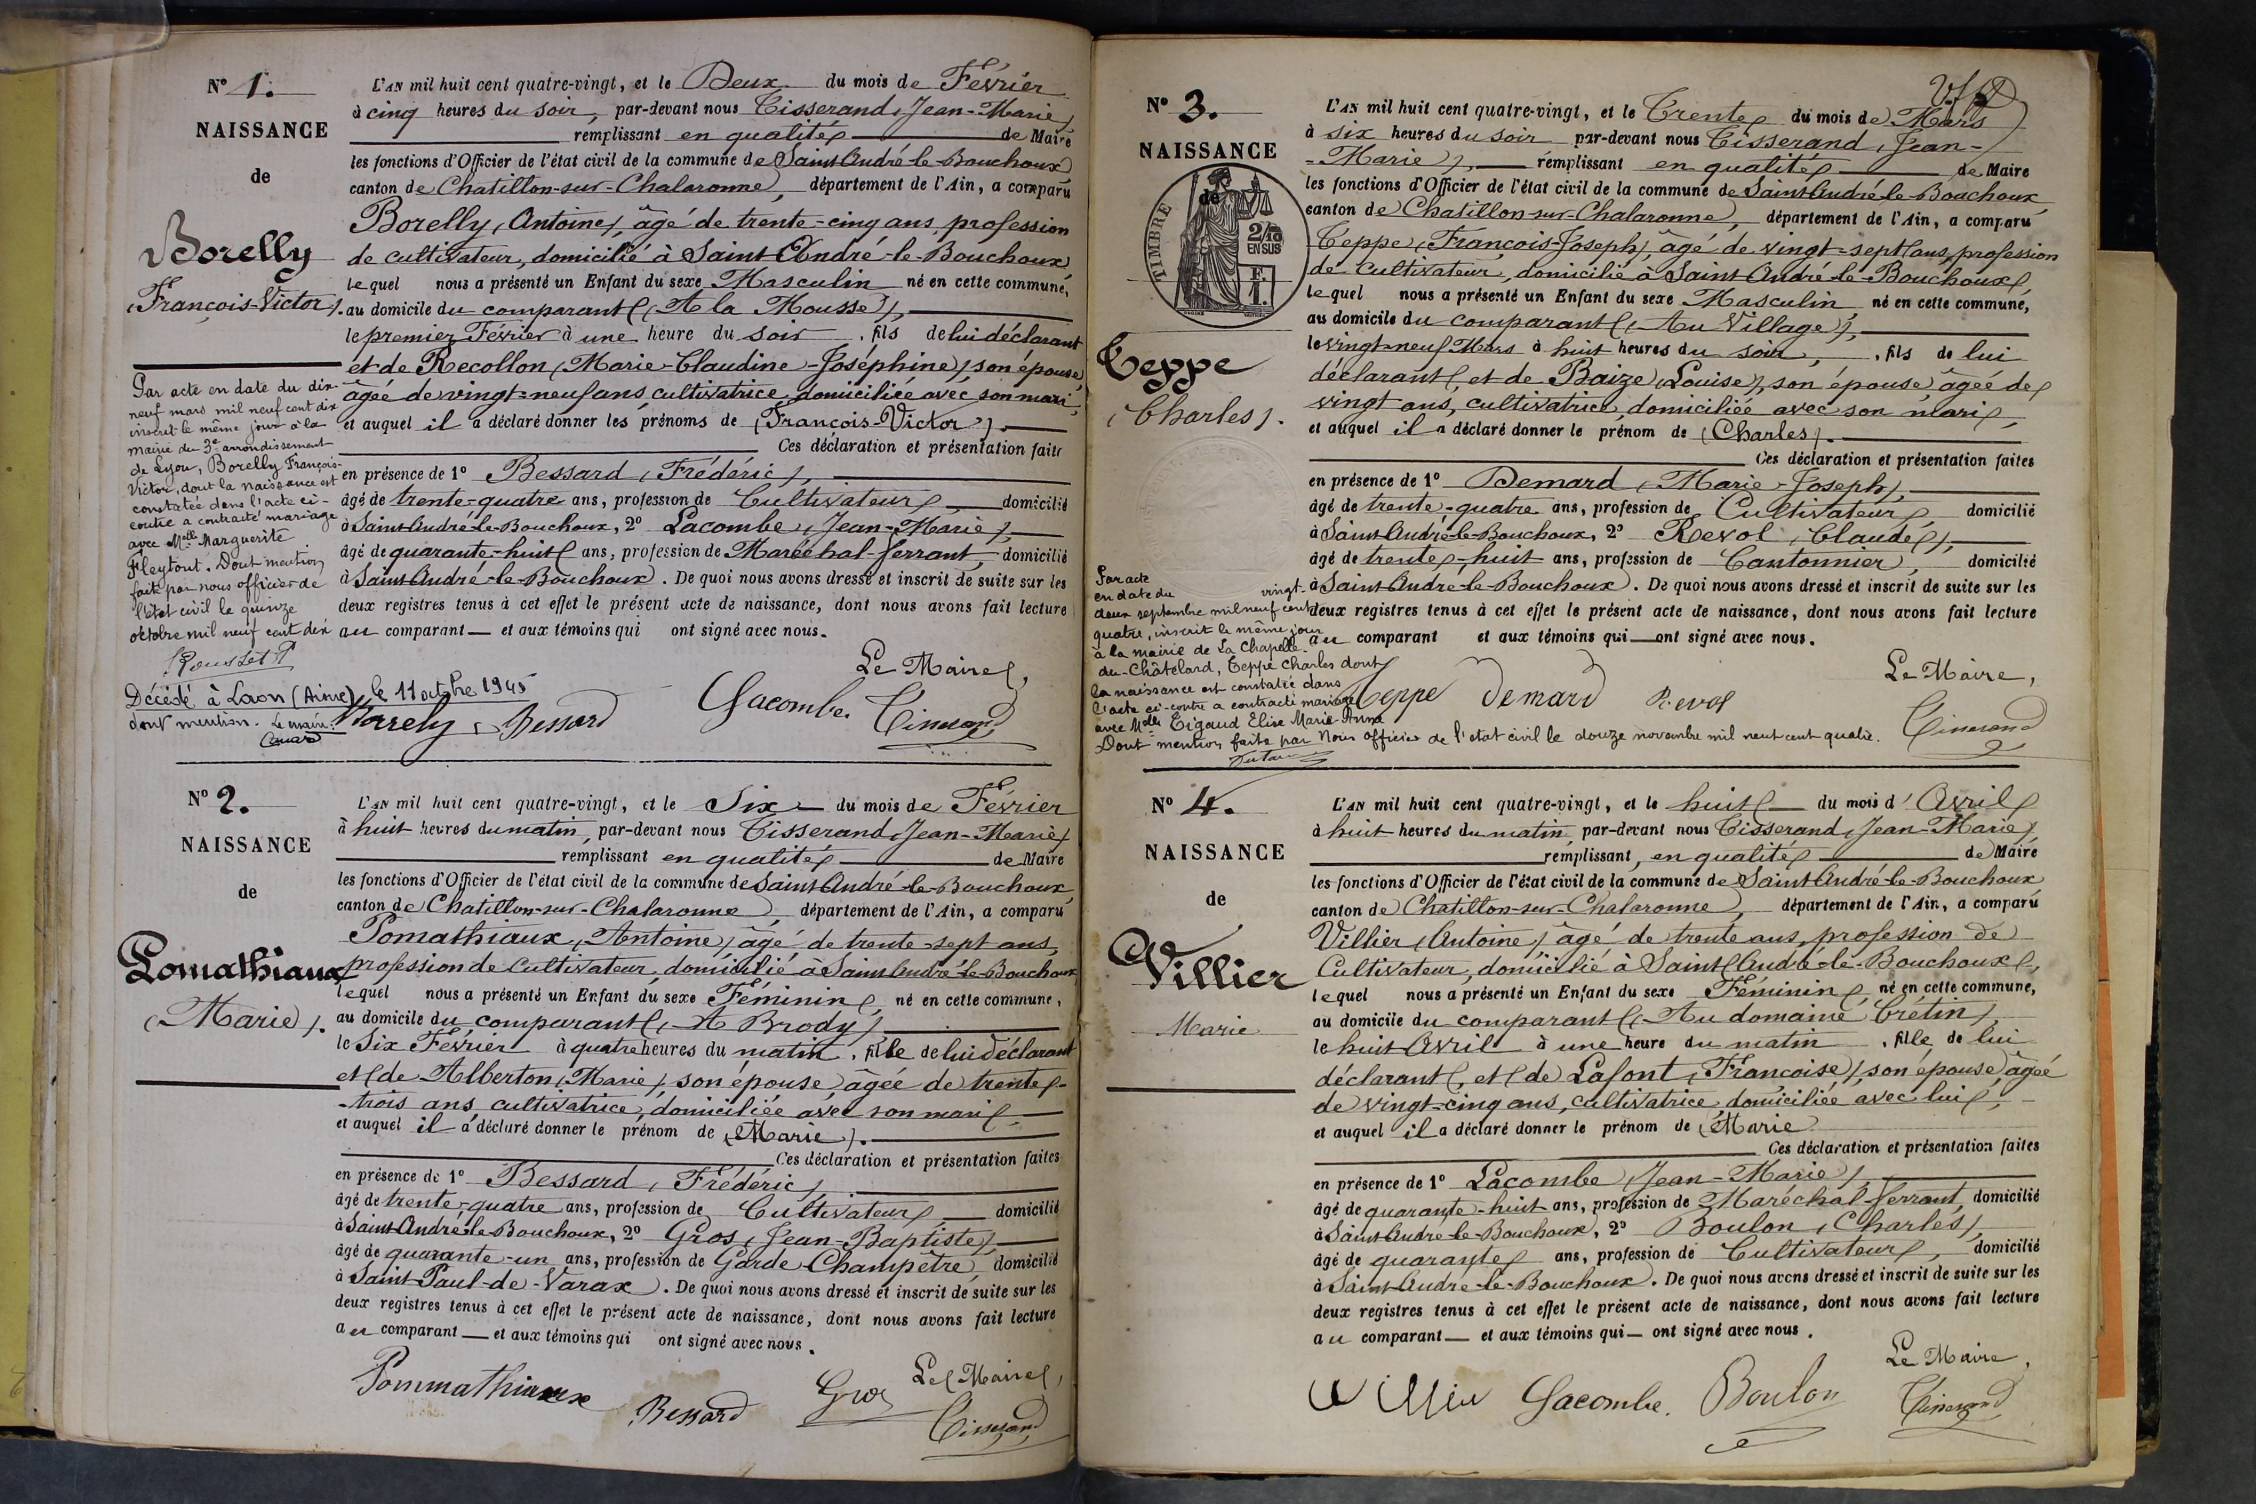 N° 1.
NAISSANCE
de
Borelly
(François-Victor).
L'AN mil huit cent quatre-vingt, et le Deux du mois de Février
à cinq heures du soir, par-devant nous Tisserand, Jean-Marie,
remplissant en qualité de Maire
les fonctions d'Officier de l'état civil de la commune de Saint-André-le-Bouchoux
canton de Chatillon-sur-Chalaronne, département de l'Ain, a comparu
Borelly (Antoine), âgé de trente-cinq ans, profession
de cultivateur, domicilié à Saint-André-le-Bouchoux,
lequel nous a présenté un Enfant du sexe Masculin né en cette commune,
au domicile du comparant (A la Mousse),
le premier Février à une heure du soir, fils de lui déclarant
et de Recollon (Marie-Claudine-Joséphine) son épouse,
âgée de vingt-neuf ans, cultivatrice, domiciliée avec son mari,
et auquel il a déclaré donner les prénoms de (François-Victor).
Ces déclaration et présentation faites
en présence de 1° Bessard (Frédéric),
âgé de trente-quatre ans, profession de Cultivateur, domicilié
à Saint-André-le-Bouchoux, 2° Lacombe (Jean-Marie),
âgé de quarante-huit ans, profession de Maréchal-ferrant, domicilié
à Saint-André-le-Bouchoux. De quoi nous avons dressé et inscrit de suite sur les
deux registres tenus à cet effet le présent acte de naissance, dont nous avons fait lecture
au comparant et aux témoins qui ont signé avec nous.
Le Maire,
Borrely Bessard Lacombe. Tisserand
Par acte en date du dix-
neuf mars mil neuf cent dix
inscrit le même jour à la
mairie du 3e arrondissement
de Lyon, Borelly François-
Victor, dont la naissance est
constatée dans l'acte ci-
contre a contracté mariage
avec Melle Marguerite
Fleytout. Dont mention
faite par nous officier de
l'état civil le quinze
octobre mil neuf cent dix
Rousset
Décédé à Laon (Aisne) le 11 octobre 1945
dont mention. Le maire.
N° 2.
NAISSANCE
de
Pomathiaux
(Marie).
L'AN mil huit cent quatre-vingt, et le Six du mois de Février
à huit heures du matin, par-devant nous Tisserand, Jean-Marie,
remplissant en qualité de Maire
les fonctions d'Officier de l'état civil de la commune de Saint-André-le-Bouchoux
canton de Chatillon-sur-Chalaronne, département de l'Ain, a comparu
Pomathiaux (Antoine) âgé de trente-sept ans,
profession de cultivateur, domicilié à Saint-André-le-Bouchoux
lequel nous a présenté un Enfant du sexe Féminin, né en cette commune,
au domicile du comparant (A Brody)
le Six Février à quatre heures du matin, fille de lui déclarant
et de Alberton (Marie), son épouse âgée de trente-
-trois ans, cultivatrice, domiciliée avec son mari,
et auquel il a déclaré donner le prénom de (Marie).
Ces déclaration et présentation faites
en présence de 1° Bessard (Frédéric)
âgé de trente-quatre ans, profession de Cultivateur domicilié
à Saint-André-le-Bouchoux, 2° Gros (Jean-Baptiste),
âgé de quarante-un ans, profession de Garde Champêtre, domicilié
à Saint-Paul-de-Varax. De quoi nous avons dressé et inscrit de suite sur les
deux registres tenus à cet effet le présent acte de naissance, dont nous avons fait lecture
au comparant et aux témoins qui ont signé avec nous.
Le Maire,
Pommathiaux Bessard Gros Tisserand
N° 3.
NAISSANCE
de
TIMBRE
2/10
EN SUS
F.
1.
Teppe
(Charles).
L'AN mil huit cent quatre-vingt, et le Trente du mois de Mars
à six heures du soir par-devant nous Tisserand, Jean-
-Marie), remplissant en qualité de Maire
les fonctions d'Officier de l'état civil de la commune de Saint-André-le-Bouchoux,
canton de Chatillon-sur-Chalaronne, département de l'Ain, a comparu
Teppe (François-Joseph), âgé de vingt-sept ans, profession
de cultivateur, domicilié à Saint-André-le-Bouchoux,
lequel nous a présenté un Enfant du sexe Masculin né en cette commune,
au domicile du comparant (Au Village),
le vingt-neuf Mars à huit heures du soir, fils de lui
déclarant, et de Baize (Louise), son épouse âgée de
vingt ans, cultivatrice, domiciliée avec son mari,
et auquel il a déclaré donner le prénom de (Charles).
Ces déclaration et présentation faites
en présence de 1° Demard (Marie-Joseph),
âgé de trente-quatre ans, profession de Cultivateur domicilié
à Saint-André-le-Bouchoux, 2° Revol (Claude),
âgé de trente-huit ans, profession de Cantonnier, domicilié
à Saint-André-le-Bouchoux. De quoi nous avons dressé et inscrit de suite sur les
deux registres tenus à cet effet le présent acte de naissance, dont nous avons fait lecture
au comparant et aux témoins qui ont signé avec nous.
Le Maire,
Teppe Demard Revol Tisserand
Par acte
en date du vingt-
deux septembre mil neuf cent
quatre, inscrit le même jour
à la mairie de La Chapelle-
du-Châtelard, Teppe Charles dont
la naissance est constatée dans
l'acte ci-contre a contracté mariage
avec Mlle Tigaud Elise Marie-Anna
Dont mention faite par Nous officier de l'état civil le douze novembre mil neuf cent quatre.
N° 4.
NAISSANCE
de
Villier
Marie
L'AN mil huit cent quatre-vingt, et le huit du mois d'Avril
à huit heures du matin par-devant nous Tisserand, Jean-Marie,
remplissant, en qualité de Maire
les fonctions d'Officier de l'état civil de la commune de Saint-André-le-Bouchoux
canton de Chatillon-sur-Chalaronne, département de l'Ain, a comparu
Villier (Antoine) âgé de trente ans, profession de
Cultivateur, domicilié à Saint-André-le-Bouchoux,
lequel nous a présenté un Enfant du sexe Féminin, né en cette commune,
au domicile du comparant (Au domaine Crétin)
le huit Avril à une heure du matin, fille de lui
déclarant, et de Lafont (Françoise), son épouse âgée
de vingt-cinq ans, cultivatrice, domiciliée avec lui,
et auquel il a déclaré donner le prénom de (Marie
Ces déclaration et présentation faites
en présence de 1° Lacombe (Jean-Marie),
âgé de quarante-huit ans, profession de Maréchal-ferrant, domicilié
à Saint-André-le-Bouchoux, 2° Boulon (Charles),
âgé de quarante ans, profession de Cultivateur, domicilié
à Saint-André-le-Bouchoux. De quoi nous avons dressé et inscrit de suite sur les
deux registres tenus à cet effet le présent acte de naissance, dont nous avons fait lecture
au comparant et aux témoins qui ont signé avec nous.
Le Maire,
Villier Lacombe. Boulon Tisserand